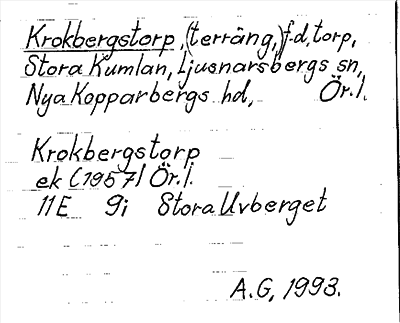 Krokbergstorp, (terräng,) f.d. torp,
Stora Kumlan, Ljusnarsbergs sn,
Nya Kopparbergs hd, Ör.l.
Krokbergstorp
ek (1957) Ör.l.
11E 9i Stora Uvberget
A.G, 1993.